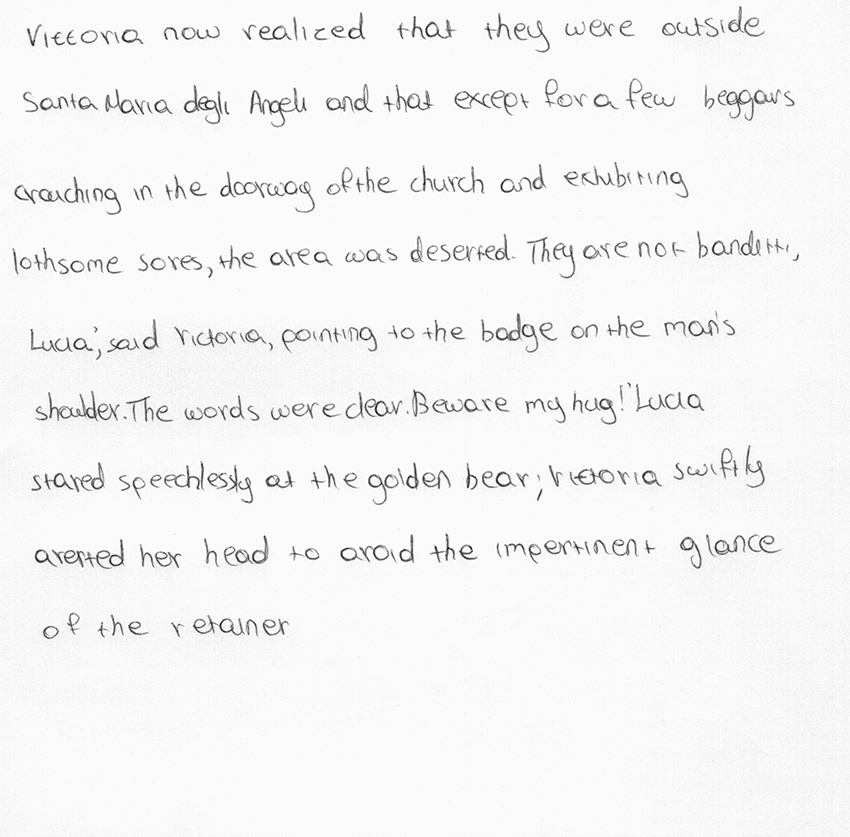 Vittoria now realized that they were outside
Santa Maria degli Angeli and that except for a few beggars
crouching in the doorway of the church and exhibiting
lothsome sores, the area was deserted. They are not banditti,
Lucia', said Victoria, pointing to the badge on the man's
shoulder. The words were clear. Beware my hug!' Lucia
stared speechlessly at the golden bear; Victoria swiftly
averted her head to avoid the impertinent glance
of the retainer